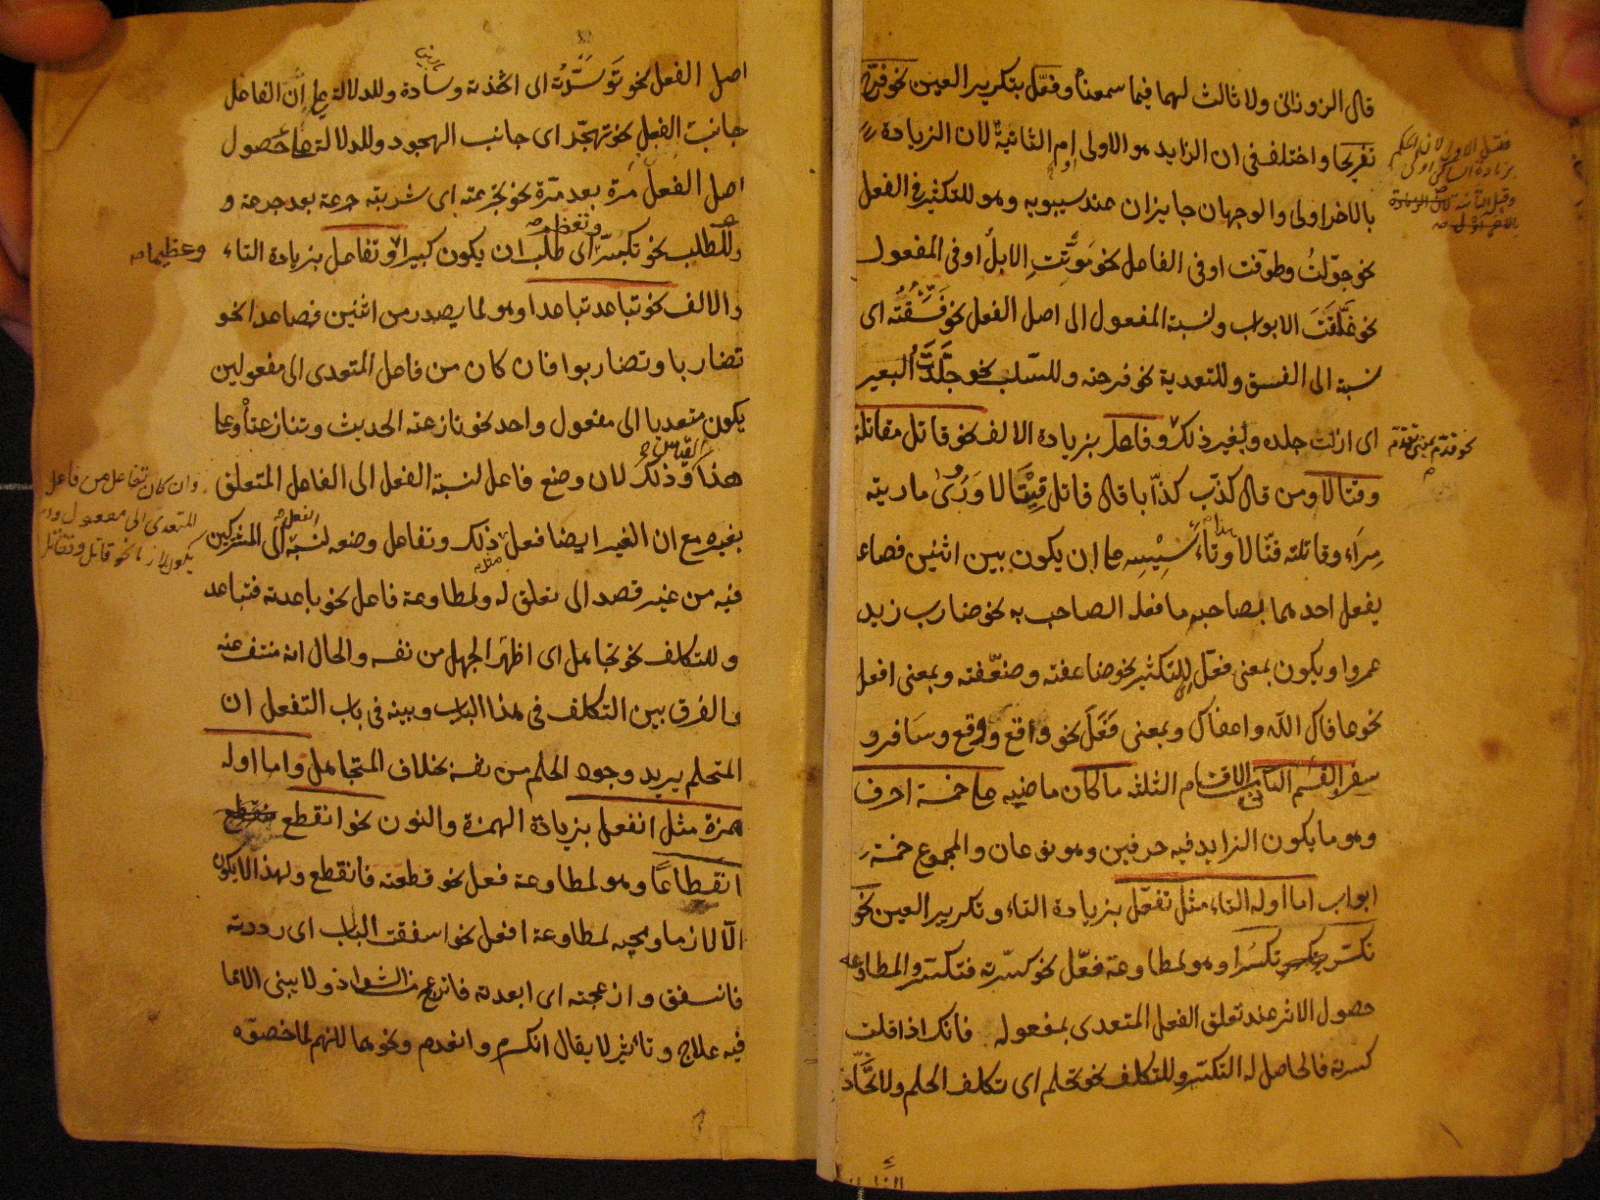 قال الزوزنى ولا ثالث لهما فيما سمعنا وفعّل بتكرير العين نحو فرّح
تفريحا واختلف فى ان الزايد هو الاولى ام الثانية لان الزيادة
بالاخر اولى والوجهان جايزان عند سيبويه وهو للتكثير فى الفعل
نحو جوّلتُ وطوّفت او فى الفاعل نحو موّتتِ الابلُ او فى المفعول
نحو غلّقتَ الابواب ولنسبة المفعول الى اصل الفعل نحو فسّقته اى
نسبة الى الفسق وللتعدية نحو فرحته وللسّلب نحو جلّدتُ البعير
اى ازلت جلده ولغير ذلك وفاعل بزيادة الالف نحو قاتل مقاتلة
وقتالا ومن قال كذّب كذّابا قال قاتل قِيْتَالا وَرُوى ماريته
مِرَاء وقاتلته قتّالا على ان يكون بين اثنين فصاعدا
يفعل احدهما بصاحبه ما فعل الصاحب به نحو ضارب زيد
عمروا ويكون بمعنى فعّل للتكثير نحو ضاعفته وضعّفته وبمعنى افعل
نحو عافاك الله واعفاك وبمعنى فَعَلَ نحو واقع ووقع وسَافر و
سفر القسم الثانى الاقسام الثلثه ما كان ماضيه على خمسة احرف
وهو ما يكون الزايد فيه حرفين وهو نوعان والمجموع خمسة
ابواب اما اوله التاء مثل تفعّل بزيادة التاء وتكرير العين نحو
تكسّر تكسّرا وهو لمطاوعة فعّل نحو كسّرته فتكسّر والمطاوعة
حصول الاثر عند تعلق الفعل المتعدى بمفعوله فانك اذا قلت
كسرته فالحاصل له التكسّر وللتكلف نحو تحلم اى تكلف الحلم ولاتخاذ
نحو قدّم بمعنى تقدّم
اصل الفعل نحو تَوَسَّدْتُه اى اتخذته وسادة وللدلالة على انّ الفاعل
جانبَ الفعل نحو تهجّد اى جانب الهجود وللدلالة على حصول
اصل الفعل مرّة بعد مرّة نحو تجرعته اى شربته جرعة بعد جرعة و
للطلب نحو تكبّر اى طلب ان يكون كبيرا وتفاعل بزيادة التاء
والالف نحو تباعد تباعدا وهو لما يصدر من اثنين فصاعدا نحو
تضاربا وتضاربوا فان كان من فاعل المتعدى الى مفعولين
يكون متعديا الى مفعول واحد نحو نازعته الحديث وتنازعنا وعلى
هذا وذلك لان وضع فاعل لنسبة الفعل الى الفاعل المتعلق
بغيره مع ان الغير ايضا فعل ذلك وتفاعل وضعه لنسبة الى المشتركين
فيه من غير قصد الى تعلق له ولمطاوعة فاعل نحو باعدته فتباعد
وللتكلف نحو تجاهل اى اظهر الجهل من نفسه والحال انه منتف عنه
والفرق بين التكلف فى هذا الباب وبينه فى باب التفعل ان
المتحلم يريد وجود الحلم من نفسه بخلاف المتجاهل واما اوله
همزة مثل انفعل بزيادة الهمزة والنون نحو انقطع
انقطاعًا وهو لمطاوعة فعل نحو قطعته فانقطع ولهذا لا يكون
الّا لازما ومجيه لمطاوعة افعل نحو اسفقت الباب اى رددته
فانسفق وازعجته اى ابعدته فانزعج من الشواذ ولا يبنى الا مما
فيه علاج وتأثير لا يقال انكرم وانعدم ونحوهما لانهم لما خصوه
وعظيما
وان كان تفاعل من فاعل
المتعدى الى مفعول واحد
يكون لازما نحو قاتل وتقاتل